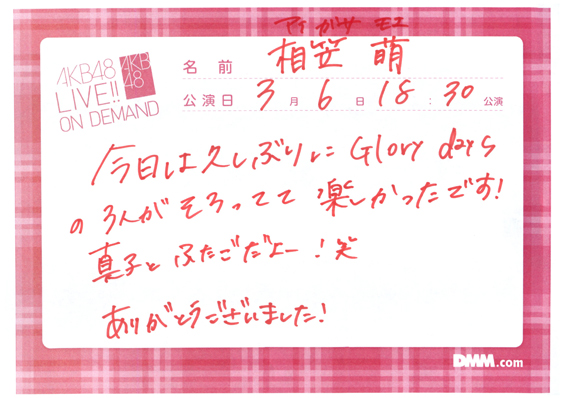 アイ ガサ モエ
AKB48
LIVE!!
ON DEMAND
AKB
48
名前 相笠 萌
公演日 3月6日 18:30公演
今日は久しぶりに Glory days
の3人がそろってて 楽しかったです!
真子と ふたごだよー!笑
ありがとうございました!
DMM.com